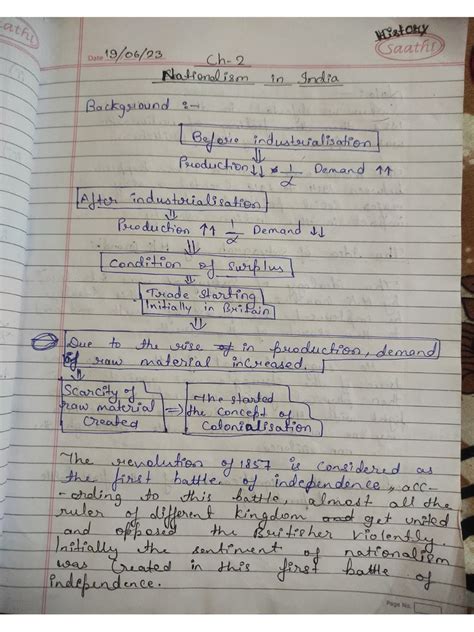 History
Saathi
Date 19/06/23
Ch-2
Nationalism in India
Background :-
Before industrialisation
⇓
Production ↓↓ 1/α Demand ↑↑
After industrialisation
⇓
Production ↑↑ 1/α Demand ↓↓
⇓
Condition of surplus
⇓
Trade starting
Initially in Britain
⇓
Due to the rise of in production, demand
of raw material increased.
⇓
Scarcity of
raw material
created
⇒
The started
the concept of
Colonialisation
The revolution of 1857 is considered as
the first battle of independence, acc-
-ording to this battle, almost all the
ruler of different kingdom and get united
and opposed the Britisher violently.
Initially the sentiment of nationalism
was created in this first battle of
independence.
Page No.